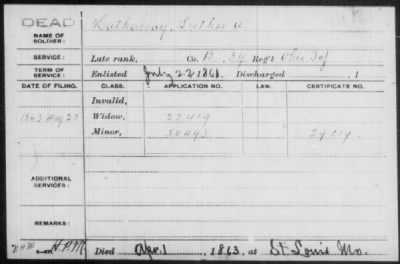 DEAD
NAME OF SOLDIER: Hathaway, Luther A.
SERVICE: Late rank, Co. B, 39 Reg't Ohio Inf
TERM OF SERVICE: Enlisted July 22 1861 Discharged , 1
DATE OF FILING. CLASS. APPLICATION NO. LAW. CERTIFICATE NO.
Invalid,
1863 May 23 Widow, 22419
Minor,
ADDITIONAL SERVICES:
REMARKS:
Died Apr. 1 1863, at St Louis Mo.